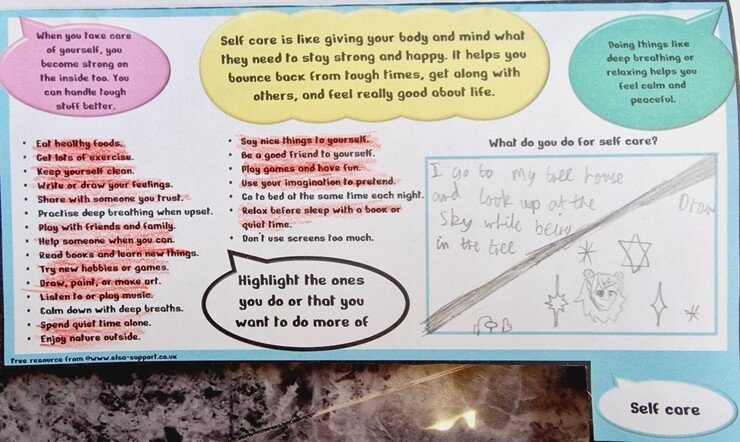 When you take care
of yourself, you
become strong on
the inside too. You
can handle tough
stuff better.
Self care is like giving your body and mind what
they need to stay strong and happy. It helps you
bounce back from tough times, get along with
others, and feel really good about life.
Doing things like
deep breathing or
relaxing helps you
feel calm and
peaceful.
• Eat healthy foods.
• Get lots of exercise.
• Keep yourself clean.
• Write or draw your feelings.
• Share with someone you trust.
• Practise deep breathing when upset.
• Play with friends and family.
• Help someone when you can.
• Read books and learn new things.
• Try new hobbies or games.
• Draw, paint, or make art.
• Listen to or play music.
• Calm down with deep breaths.
• Spend quiet time alone.
• Enjoy nature outside.
• Say nice things to yourself.
• Be a good friend to yourself.
• Play games and have fun.
• Use your imagination to pretend.
• Go to bed at the same time each night.
• Relax before sleep with a book or
quiet time.
• Don't use screens too much.
Highlight the ones
you do or that you
want to do more of
What do you do for self care?
I go to my tree house
and look up at the
sky while being
in the tree
Draw
Free resource from @www.elsa-support.co.uk
Self care